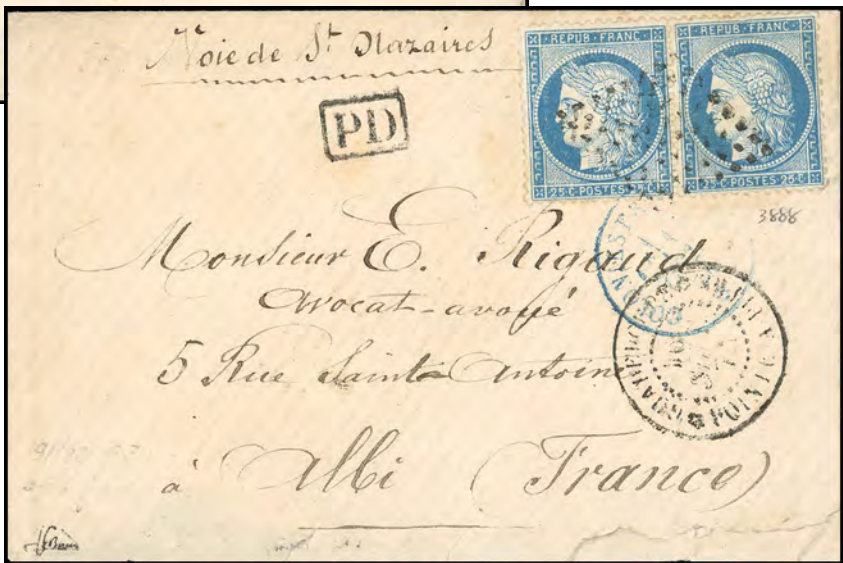 Voie de St Nazaires
PD
REPUB·FRANC·
25·C·POSTES·25·C
REPUB·FRANC·
25·C·POSTES·25·C
3888
Monsieur E. Rigaud
Avocat-avoué
5 Rue Sainte Antoine
à Albi (France)
POINTE